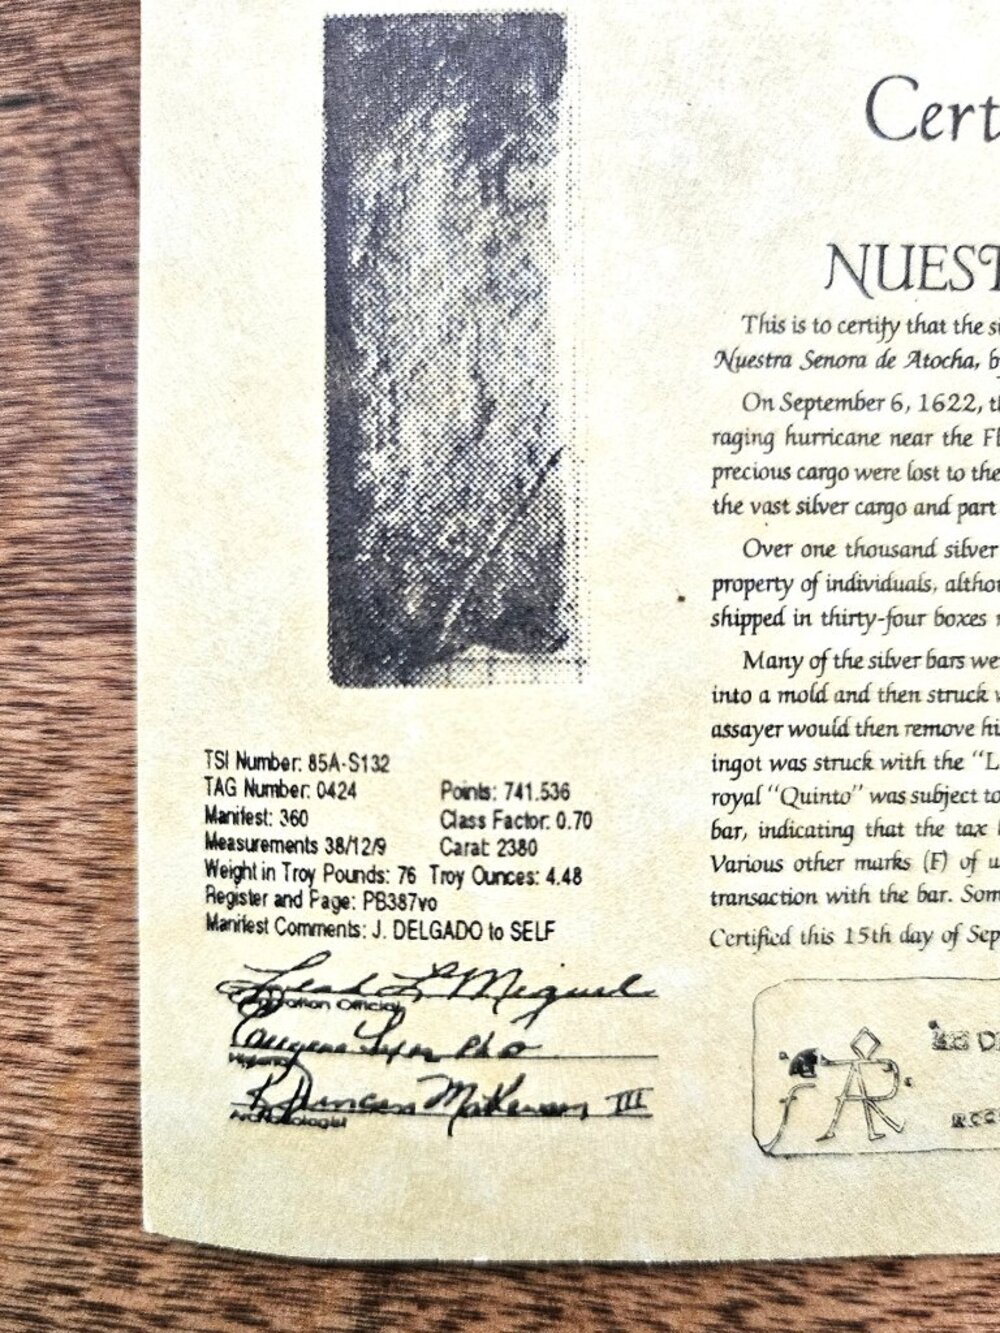 Cert
NUEST
This is to certify that the si
Nuestra Senora de Atocha, b
On September 6, 1622, th
raging hurricane near the Fl
precious cargo were lost to the
the vast silver cargo and part
Over one thousand silver
property of individuals, altho
shipped in thirty-four boxes
Many of the silver bars we
into a mold and then struck w
assayer would then remove hi
ingot was struck with the "L
royal "Quinto" was subject to
bar, indicating that the tax
Various other marks (F) of u
transaction with the bar. Som
Certified this 15th day of Sep
TSI Number: 85A-S132
TAG Number: 0424 Points: 741.536
Manifest: 360 Class Factor: 0.70
Measurements 38/12/9 Carat: 2380
Weight in Troy Pounds: 76 Troy Ounces: 4.48
Register and Page: PB387vo
Manifest Comments: J. DELGADO to SELF
Leah L Miguel
Official
Eugene Lyon PhD
R Duncan Mathewson III
Archaeologist